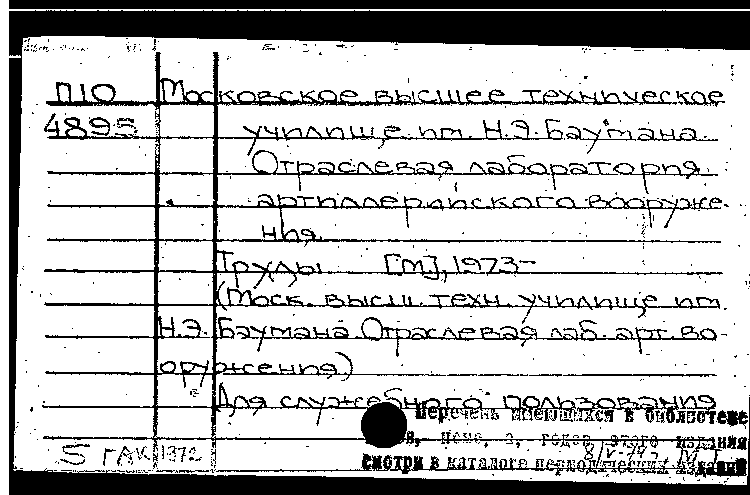 П10 Московское высшее техническое
4895 училище им. Н.Э. Баумана.
Отраслевая лаборатория
артиллерийского вооруже-
ния.
Труды. [М], 1973-
(Моск. высш. техн. училище им.
Н.Э. Баумана. Отраслевая лаб. арт. во-
оружения)
Для служебного пользования
Перечень имеющихся в библиотеке
годов этого издания
смотри в каталоге периодических изданий
5 ГАК 1372